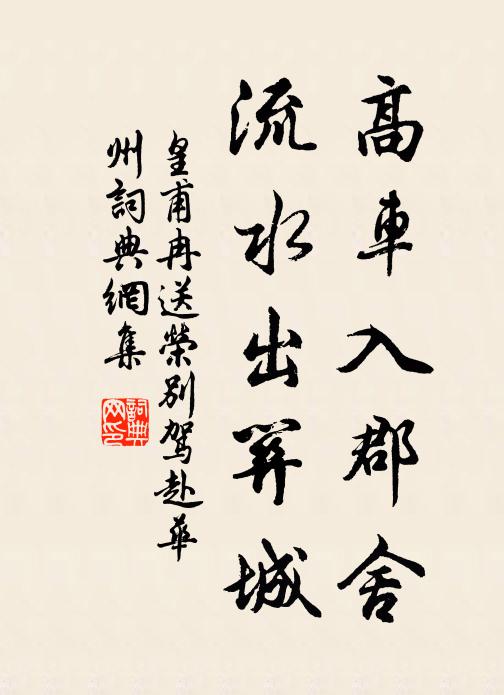 高車入郡舍
流水出關城
皇甫冉送榮別駕赴華
州詞典網集
詞典
网印